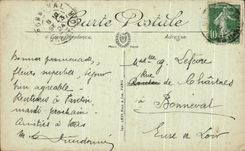 Carte Postale
Correspondance
Adresse
Bonne promenade,
fleurs superbes, séjour
bien agréable.
Rentrons à Verdun
mardi prochain.
Amitiés à tous
M
Lefèvre
Rue de Chartres
à
Bonneval
Eure et Loir